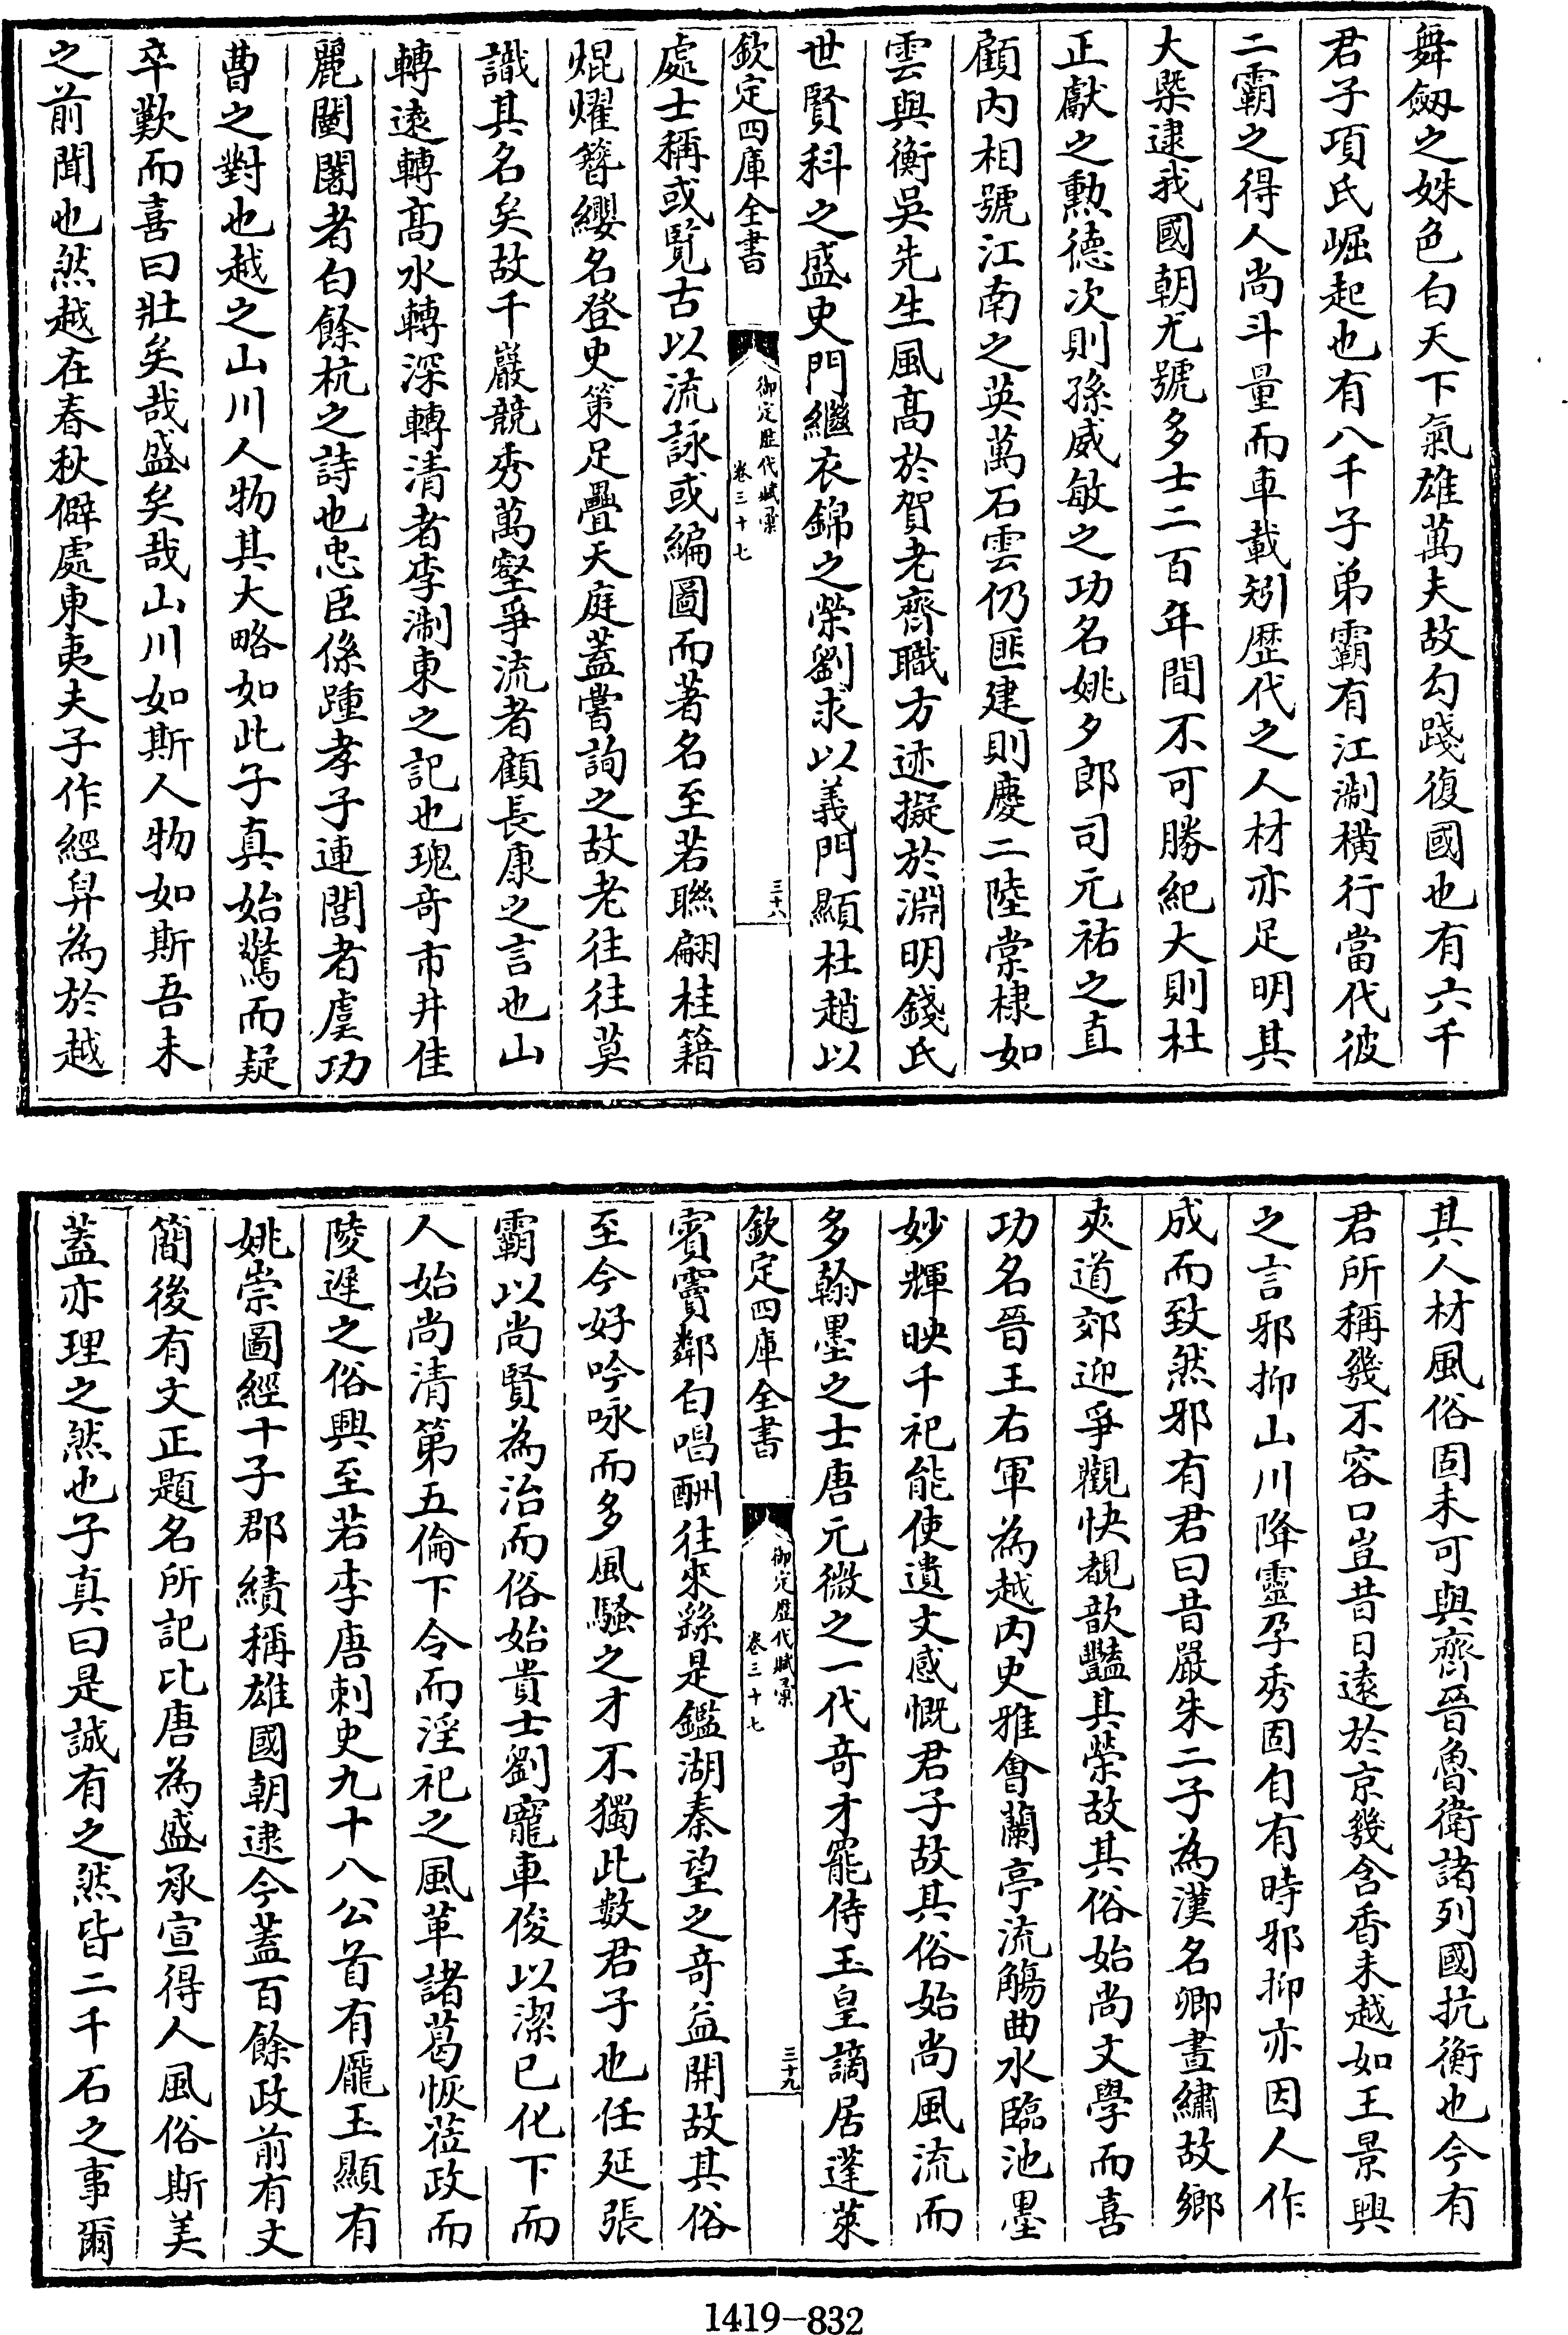 舞劔之姝色白天下氣雄萬夫故勾踐復國也有六千
君子項氏崛起也有八千子弟霸有江淛横行當代彼
二霸之得人尚斗量而車載矧歴代之人材亦足明其
大槩逮我國朝尤號多士二百年間不可勝紀大則杜
正獻之勲德次則孫威敏之功名姚夕郎司元祐之直
顧内相號江南之英萬石雲仍匪建則慶二陸棠棣如
雲與衡吳先生風髙於賀老齊職方迹擬於淵明錢氏
世賢科之盛史門繼衣錦之榮劉求以義門顯杜趙以
欽定四庫全書
御定歴代賦彙
卷三十七
三十八
處士稱或覧古以流詠或編圖而著名至若聯翩桂籍
焜燿簪纓名登史策足疊天庭蓋嘗詢之故老往往莫
識其名矣故千巖競秀萬壑爭流者顧長康之言也山
轉逺轉髙水轉深轉清者李淛東之記也瑰竒市井佳
麗闤闠者白餘杭之詩也忠臣係踵孝子連閭者虞功
曹之對也越之山川人物其大略如此子真始驚而疑
卒歎而喜曰壯矣哉盛矣哉山川如斯人物如斯吾未
之前聞也然越在春秋僻處東夷夫子作經舁為於越
其人材風俗固未可與齊晉魯衛諸列國抗衡也今有
君所稱幾不容口豈昔日逺於京幾含香未越如王景興
之言邪抑山川降靈孕秀固自有時邪抑亦因人作
成而致然邪有君曰昔嚴朱二子為漢名卿晝繡故鄉
夾道郊迎爭觀快覩歆豔其榮故其俗始尚文學而喜
功名晉王右軍為越内史雅會蘭亭流觴曲水臨池墨
妙輝映千祀能使遺文感慨君子故其俗始尚風流而
多翰墨之士唐元微之一代竒才罷侍玉皇謫居蓬萊
欽定四庫全書
御定歴代賦彙
卷三十七
三十九
賓竇鄰白唱酬往來繇是鑑湖秦望之竒益開故其俗
至今好吟咏而多風騷之才不獨此數君子也任延張
霸以尚賢為治而俗始貴士劉寵車俊以潔已化下而
人始尚清第五倫下令而淫祀之風革諸葛恢蒞政而
陵遲之俗興至若李唐刺史九十八公首有龎玉顯有
姚崇圖經十子郡績稱雄國朝逮今蓋百餘政前有文
簡後有文正題名所記比唐為盛承宣得人風俗斯美
蓋亦理之然也子真曰是誠有之然皆二千石之事爾
1419-832